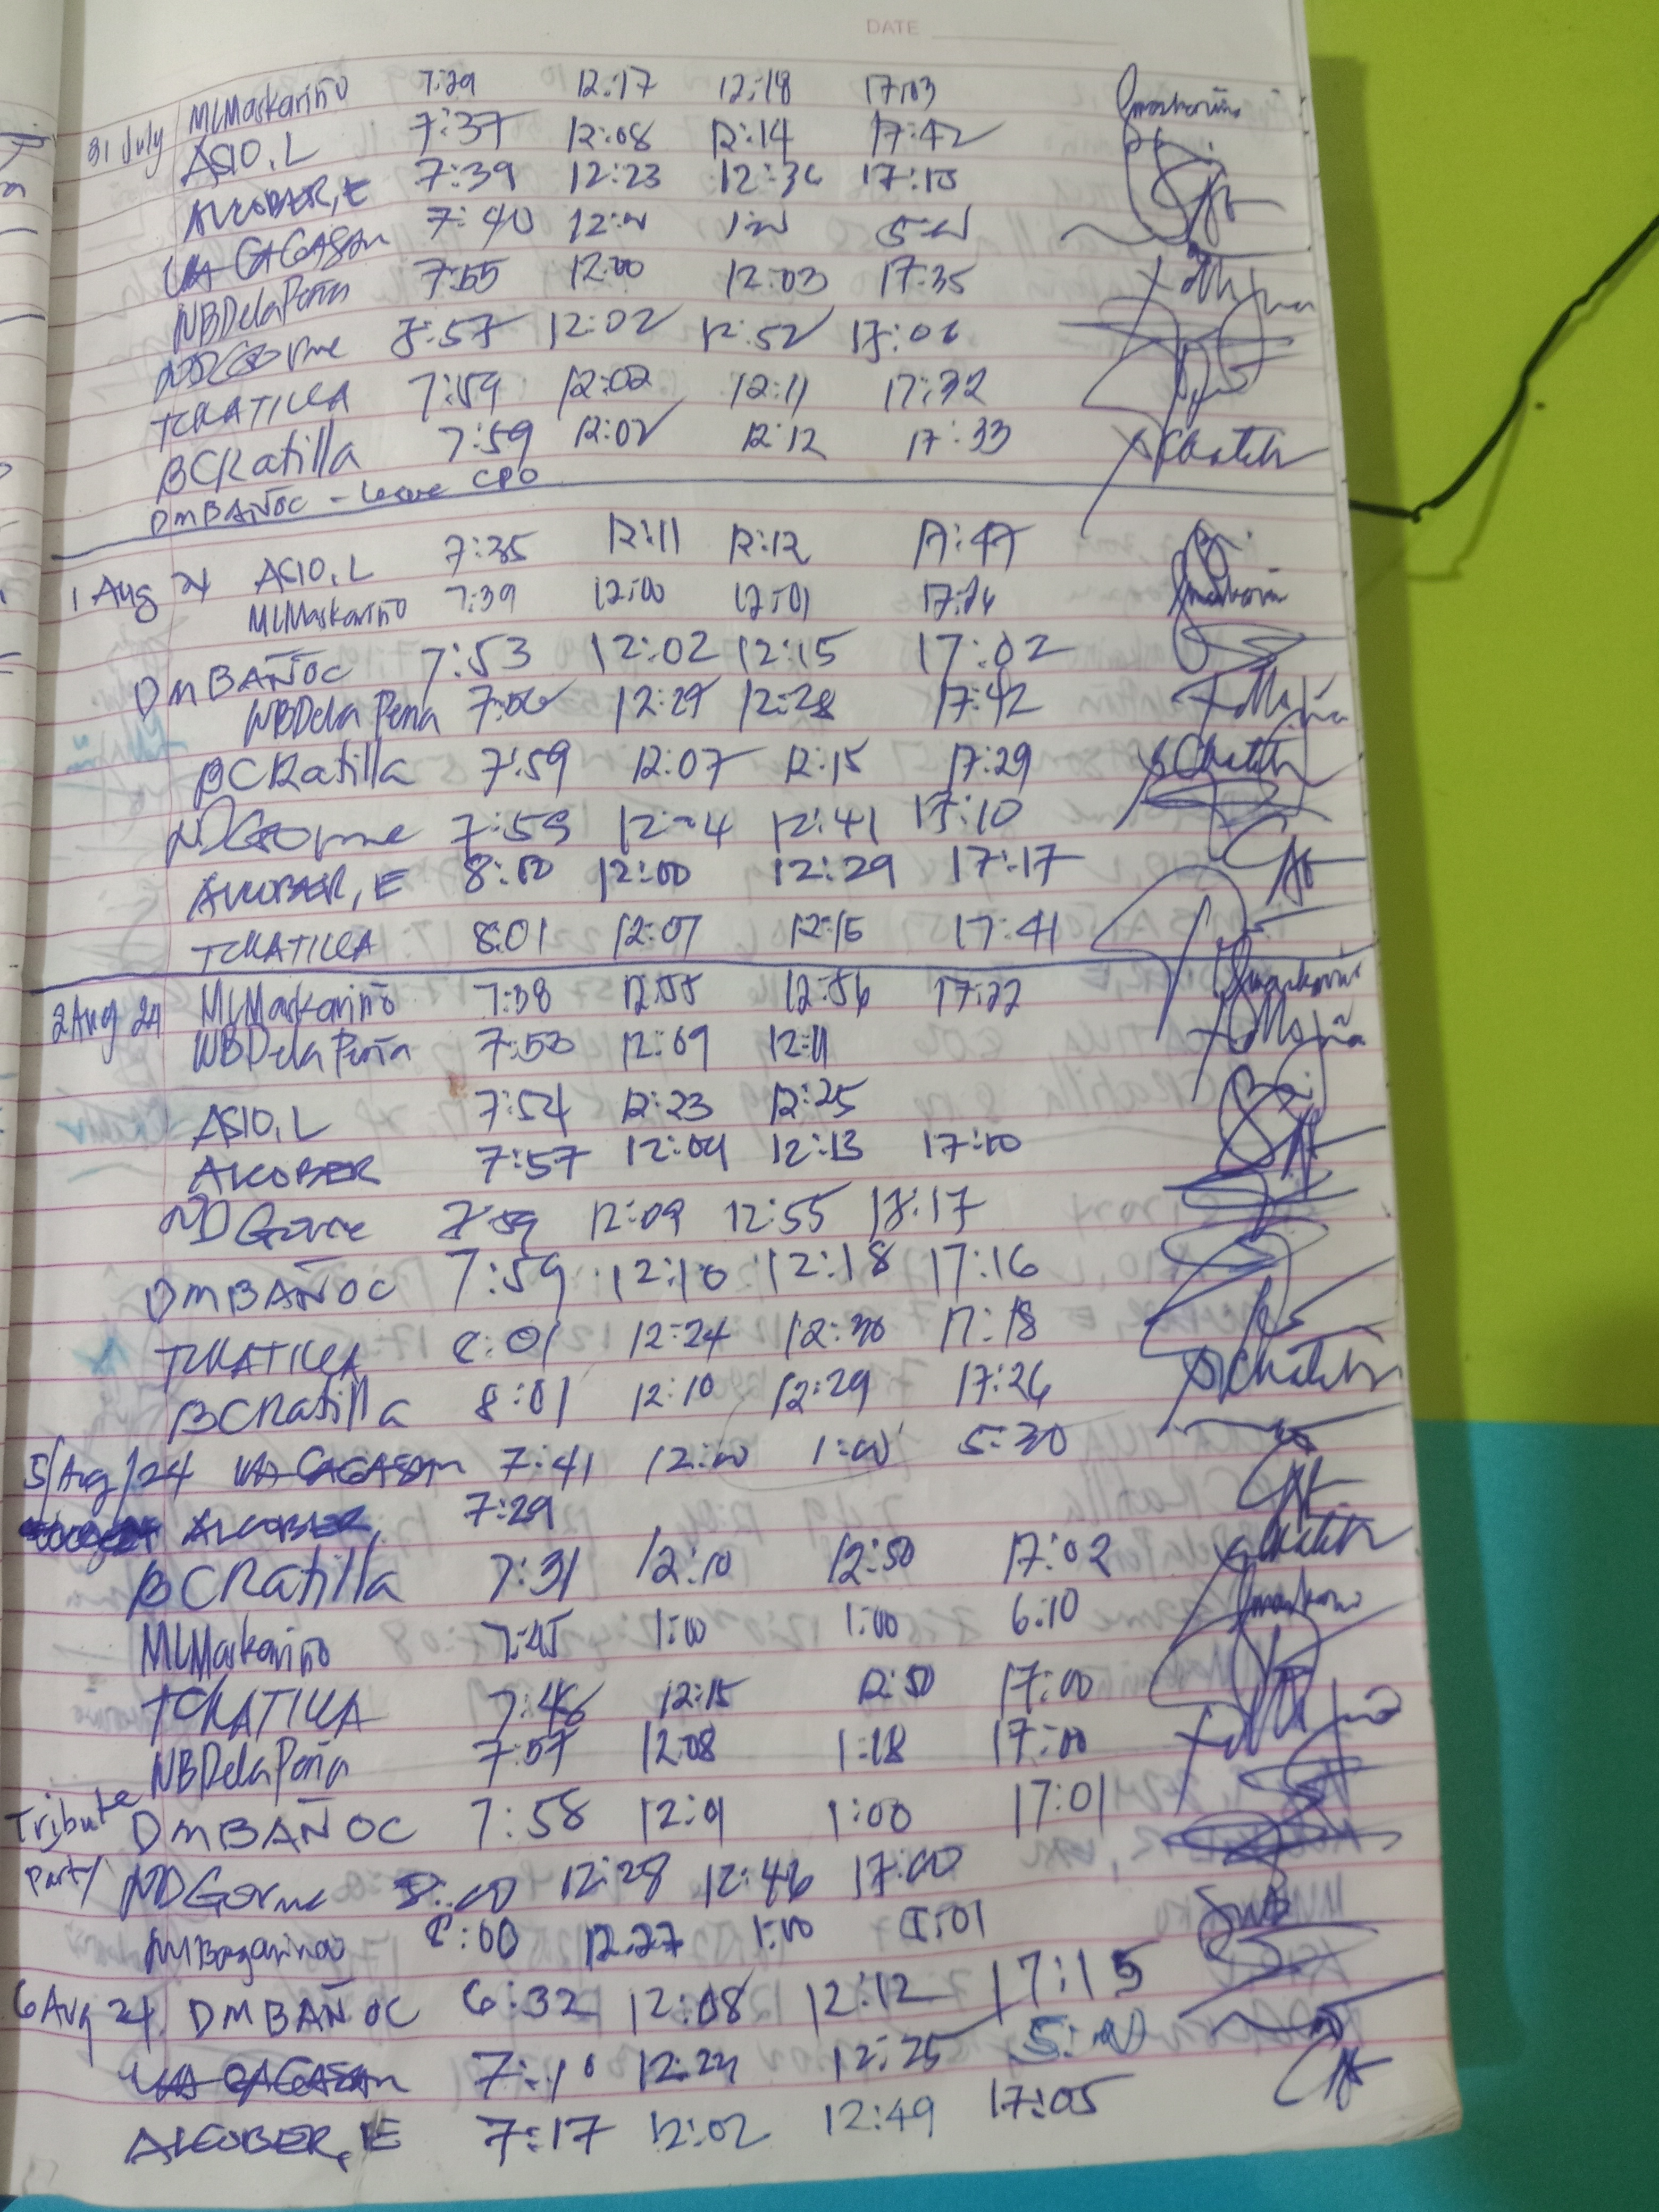 DATE
31 July MLMaskariño 7:29 12:17 12:18 17:03
ASIO, L 7:37 12:08 12:14 17:42
ALCOBER, E 7:39 12:23 12:36 17:10
CAGASAN 7:40 12:00 1:00 5:00
NBDelaPeña 7:55 12:00 12:03 17:35
NDGorme 7:57 12:02 12:52 17:06
TCRATILLA 7:59 12:02 12:11 17:32
BCRatilla 7:59 12:02 12:12 17:33
DMBAÑOC - Leave CPO
1 Aug 24 ASIO, L 7:35 12:11 12:12 17:47
MLMaskariño 7:39 12:00 12:01 17:24
DMBAÑOC 7:53 12:02 12:15 17:02
NBDela Peña 7:56 12:27 12:28 17:42
BCRatilla 7:59 12:07 12:15 17:29
NDGorme 7:59 12:41 17:10
ALCOBER, E 8:00 12:00 12:29 17:17
TCRATILLA 8:01 12:07 12:15 17:41
2 Aug 24 MLMaskariño 7:38 12:55 12:56 17:22
NBDela Peña 7:53 12:09 12:11
ASIO, L 7:54 12:23 12:25
ALCOBER 7:57 12:09 12:13 17:10
NDGorme 7:59 12:09 12:55 17:17
DMBAÑOC 7:59 12:10 12:18 17:16
TCRATILLA 8:01 12:24 12:30 17:18
BCRatilla 8:01 12:10 12:29 17:26
5/Aug/24 CAGASAN 7:41 12:00 1:00 5:30
ALCOBER 7:29
BCRatilla 7:31 12:10 12:50 17:02
MLMaskariño 7:45 1:00 1:00 6:10
TCRATILLA 7:46 12:15 12:50 17:00
NBDelaPeña 7:57 12:08 1:18 17:00
Tribute DMBAÑOC 7:58 12:11 1:00 17:01
Party NDGorme 8:00 12:28 12:46 17:00
8:00 12:27 1:00
6 Aug 24 DMBAÑOC 6:32 12:08 12:12 17:15
CAGASAN 7:10 12:24 12:25 5:00
ALCOBER, E 7:17 12:02 12:49 17:05